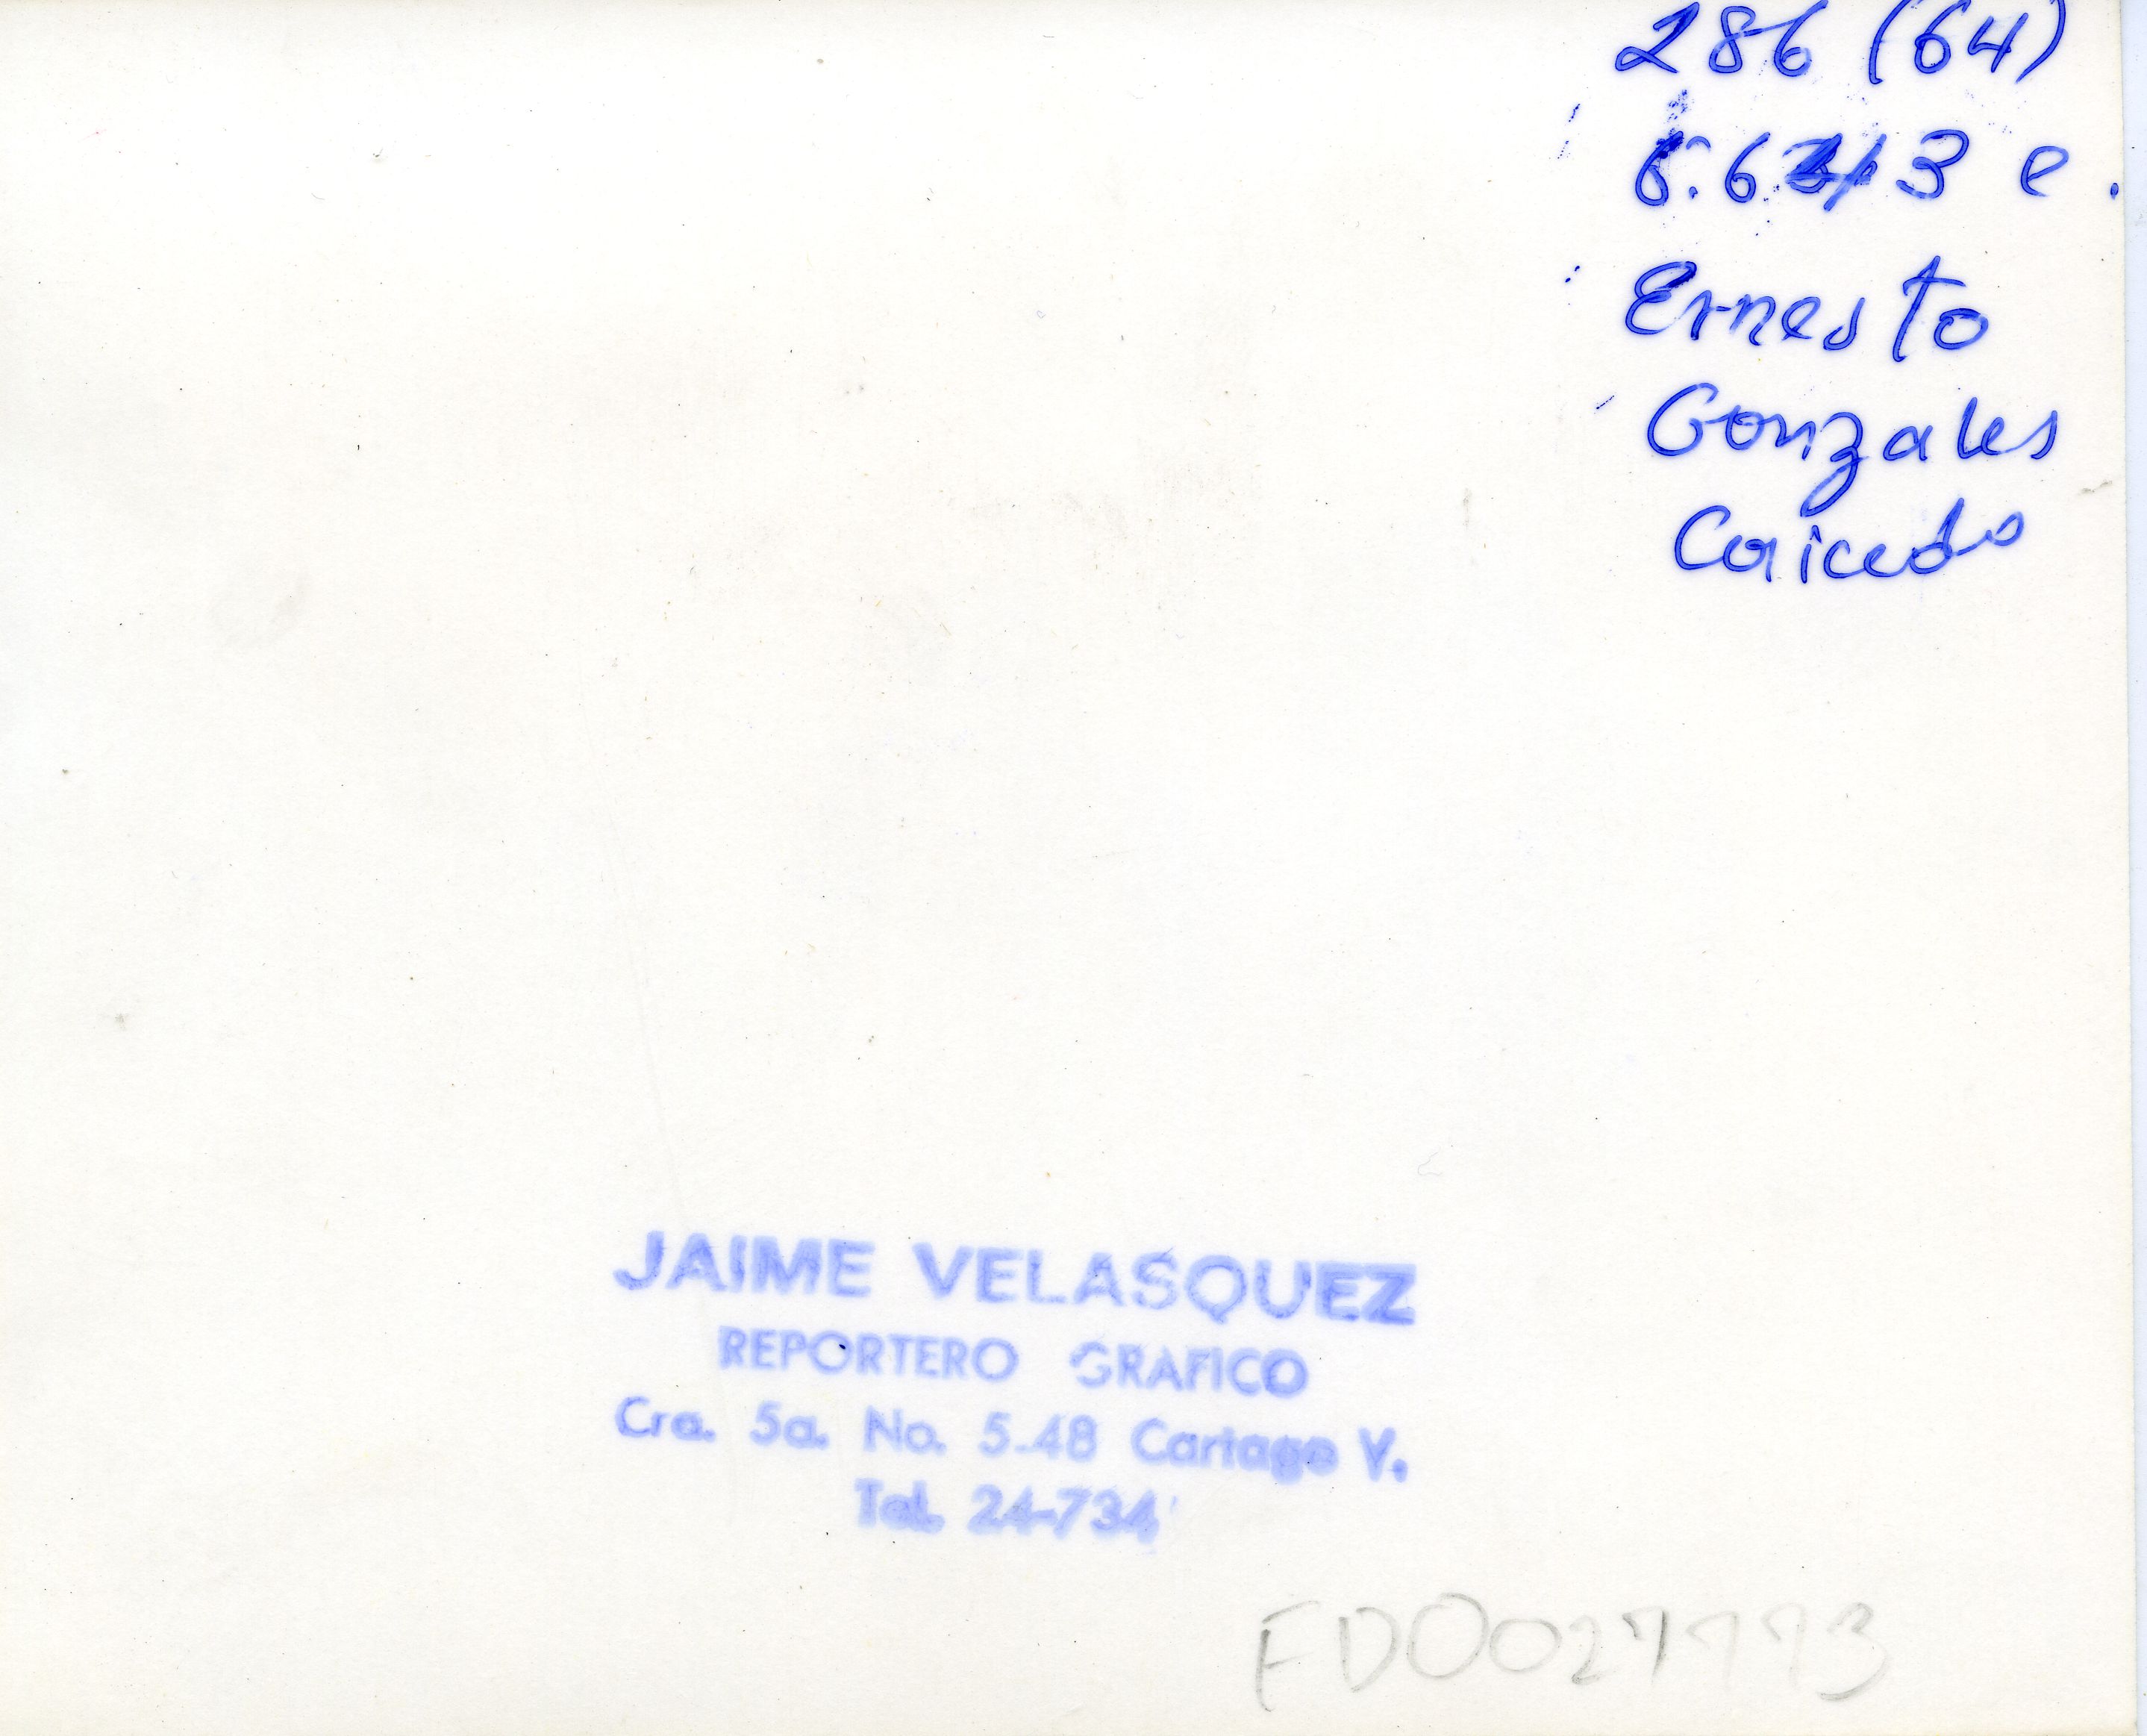 286 (64)
Ernesto
Gonzales
Caicedo
JAIME VELASQUEZ
REPORTERO GRAFICO
Cra. 5a. No. 5-48 Cartago V.
Tel. 24-734
FD0027773